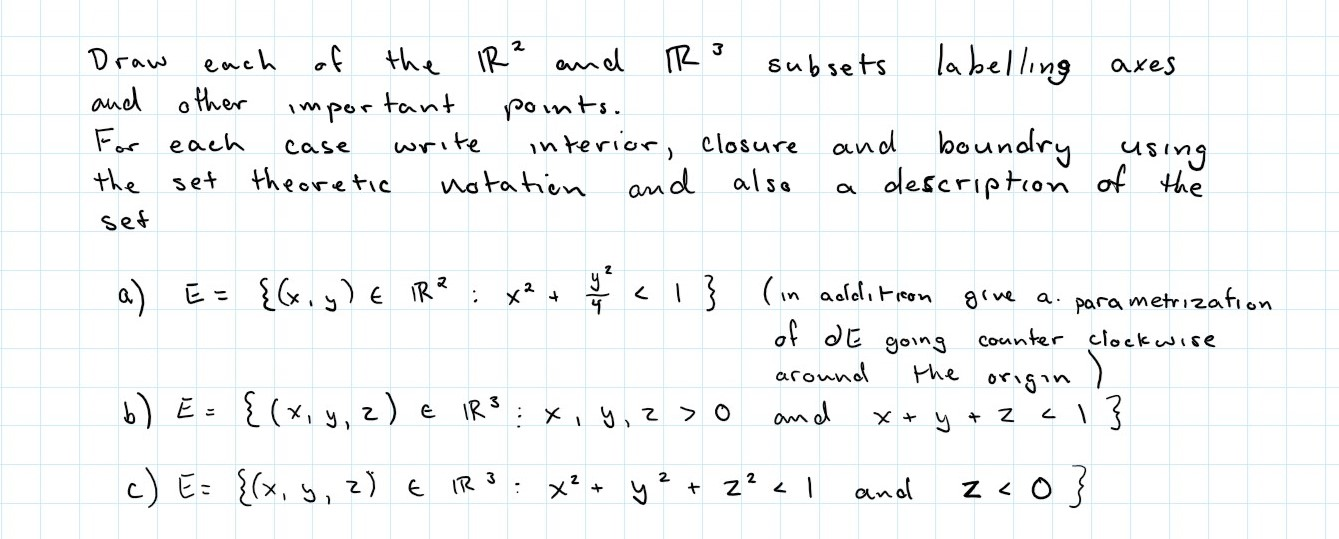 Draw each of the ℝ² and ℝ³ subsets labelling axes
and other important points.
For each case write interior, closure and boundry using
the set theoretic notation and also a description of the
set
a) E = {(x, y) ∈ ℝ² : x² + y²/4 < 1 } (in addition give a. parametrization
of ∂E going counter clockwise
around the origin)
b) E = { (x, y, z) ∈ ℝ³ : x, y, z > 0 and x + y + z < 1 }
c) E = {(x, y, z) ∈ ℝ³ : x² + y² + z² < 1 and z < 0 }